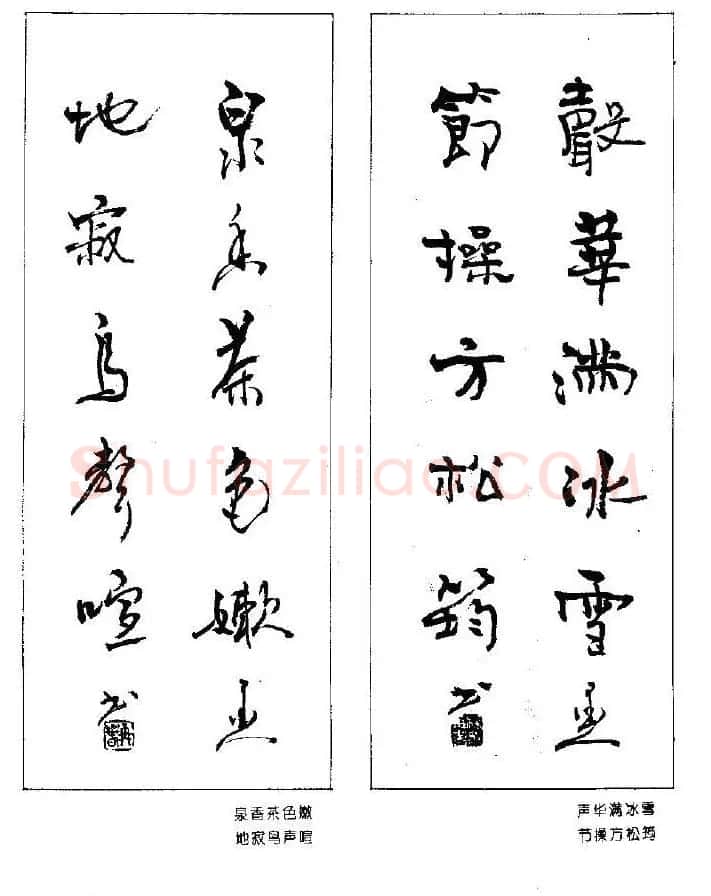 聲華滿冰雪
節操方松筠
泉香茶色嫩
地寂鳥聲喧
Shufaziliao.COM
声华满冰雪
节操方松筠
泉香茶色嫩
地寂鸟声喧